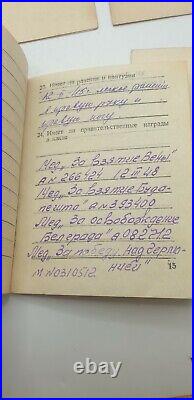 23. Имеет ли ранения и контузии
легкое ранение
в правую руку и
правую ногу.
24. Имеет ли правительственные награды
и какие
Мед. „За взятие Вены"
А № 266424 12 III 48
Мед „За взятие Буда-
пешта" А № 393400
Мед. „За освобождение
Белграда" А 082712
Мед. „За победу над Герма-
нией"
М №0310512
15